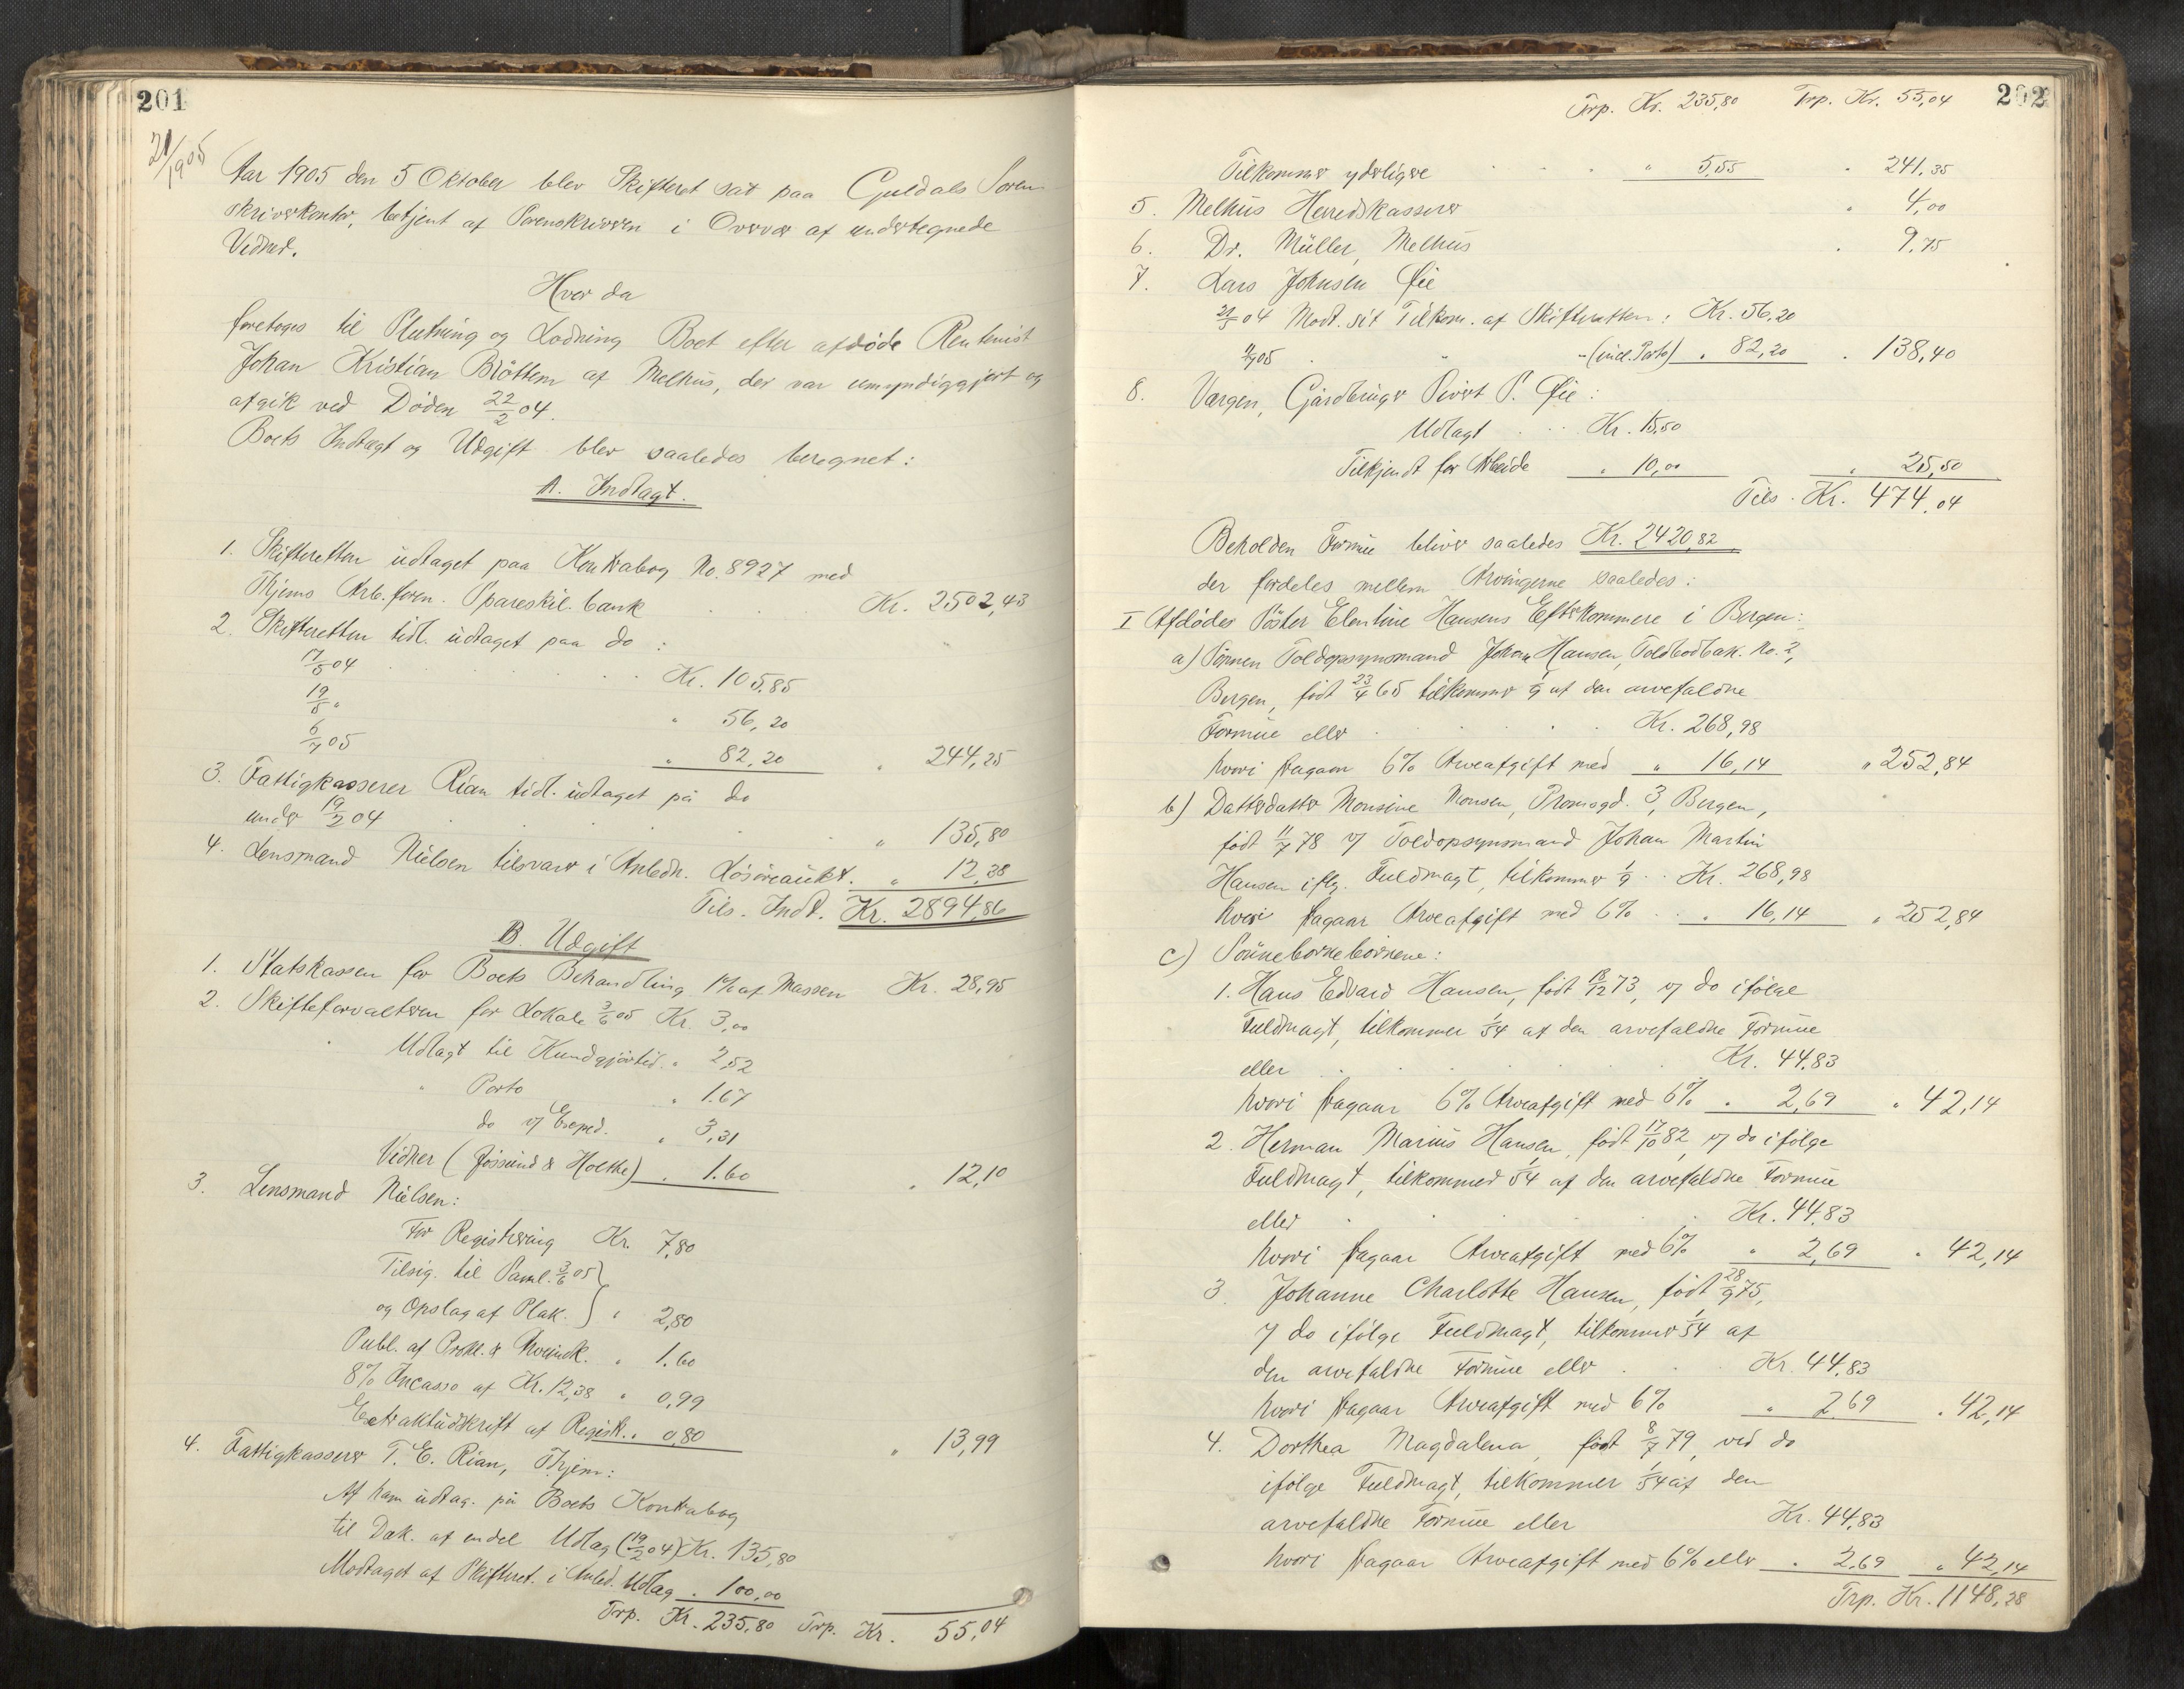 201
21/1905
Aar 1905 den 5 Oktober blev Skifteret sat paa Guldals Soren-
skriverkontor, betjent af Sorenskriveren i Overvær af undertegnede
Vidner.
Hvor da
foretoges til Slutning og Lodning Boet efter afdøde Rentenist
Johan Kristian Bröttem af Melhus, der var umyndiggjort og
afgik ved Døden 22/2 04.
Boets Indtægt og Udgift blev saaledes beregnet:
A. Indtægt.
1. Skifteretten udtaget paa Kontrabog No. 8927 med
Thjems Arb. foren. Spareskil. bank Kr. 2502,43
2. Skifteretten tidl. udtaget paa do :
17/5 04 Kr. 105,85
19/5 " " 56,20
6/7 05 " 82,20 " 244,25
3. Fattigkasserer Rian tidl. udtaget på do
under 19/2 04 " 135,80
4. Lensmand Nielsen tilsvarer i Anledn. Løsøreaukt. " 12,38
Tils. Indt. Kr. 2894,86
B. Udgift
1. Statskassen for Boets Behandling 1% af Massen Kr. 28,95
2. Skifteforvalteren for Lokale 3/6 05 Kr. 3,00
Udlagt til Kundgjørtid. " 2,52
" Porto " 1.67
do v/ Exped. " 3,31
Vidner (Jøssund & Holthe) " 1.60 " 12,10
3. Lensmand Nielsen:
For Registrering Kr. 7,80
Tilsig. til Saml. 3/6 05 }
og Opslag af Plak. } " 2,80
Publ. af Prokl. & " 1.60
8% Incasso af Kr. 12,38 " 0,99
Extraktudskrift af Registr. " 0,80 " 13,99
4. Fattigkasserer T. E. Rian, Thjem:
Af ham udtag. på Boets Kontrabog
til Dæk. af endel Udlæg (19/2 04) Kr. 135,80
Modtaget af Skifteret. i Anled. Udlæg " 100,00
Trp. Kr. 235,80 Trp. Kr. 55,04
Trp. Kr. 235,80 Trp. Kr. 55,04 202
Tilkommer yderligere " 5,55 " 241,35
5. Melhus Herredskasserer " 4,00
6. Dr. Müller, Melhus " 9,75
7. Lars Johnsen Øie
21/5 04 Modt. sit Tilkom. af Skifteretten: Kr. 56,20
/7 05 " " (incl. Porto) " 82,20 " 138,40
8. Værgen, Gårdbruger Sivert P. Øie :
Udlagt Kr. 15,50
Tilkjendt for Arbeide " 10,00 " 25,50
Tils. Kr. 474,04
Beholden Formue bliver saaledes Kr. 2420,82
der fordeles mellem Arvingerne saaledes:
I Afdødes Søster Elentine Hansens Efterkommere i Bergen:
a) Sønnen Toldopsynsmand Johan Hansen, Toldbodbak. No. 2,
Bergen, født 23/4 65 tilkommer 1/9 af den arvefaldne
Formue eller Kr. 268,98
hvori fragaar 6% Arveafgift med " 16,14 " 252,84
b) Datterdatter Monsine Monsen, Promsgd. 3, Bergen,
født 11/7 78 v/ Toldopsynsmand Johan Martin
Hansen iflg. Fuldmagt, tilkommer 1/9 Kr. 268,98
hvori fragaar Arveafgift med 6% " 16,14 " 252,84
c) Sønnebørnebørnene:
1. Hans Edvard Hansen, født 18/12 73, v/ do ifølge
Fuldmagt, tilkommer 1/54 af den arvefaldne Formue
eller Kr. 44,83
hvori fragaar 6% Arveafgift med 6% " 2,69 " 42,14
2. Herman Marius Hansen, født 17/10 82, v/ do ifølge
Fuldmagt, tilkommer 1/54 af den arvefaldne Formue
eller Kr. 44,83
hvori fragaar Arveafgift med 6% " 2,69 " 42,14
3. Johanne Charlotte Hansen, født 28/9 75,
v/ do ifølge Fuldmagt, tilkommer 1/54 af
den arvefaldne Formue eller Kr. 44,83
hvori fragaar Arveafgift med 6% " 2,69 " 42,14
4. Dorthea Magdalena, født 8/7 79, ved do
ifølge Fuldmagt, tilkommer 1/54 af den
arvefaldne Formue eller Kr. 44,83
hvori fragaar Arveafgift med 6% eller " 2,69 " 42,14
Trp. Kr. 1148,28